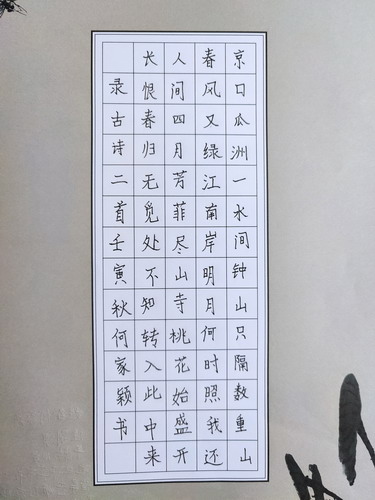 京口瓜洲一水间钟山只隔数重山
春风又绿江南岸明月何时照我还
人间四月芳菲尽山寺桃花始盛开
长恨春归无觅处不知转入此中来
录古诗二首壬寅秋何家颖书